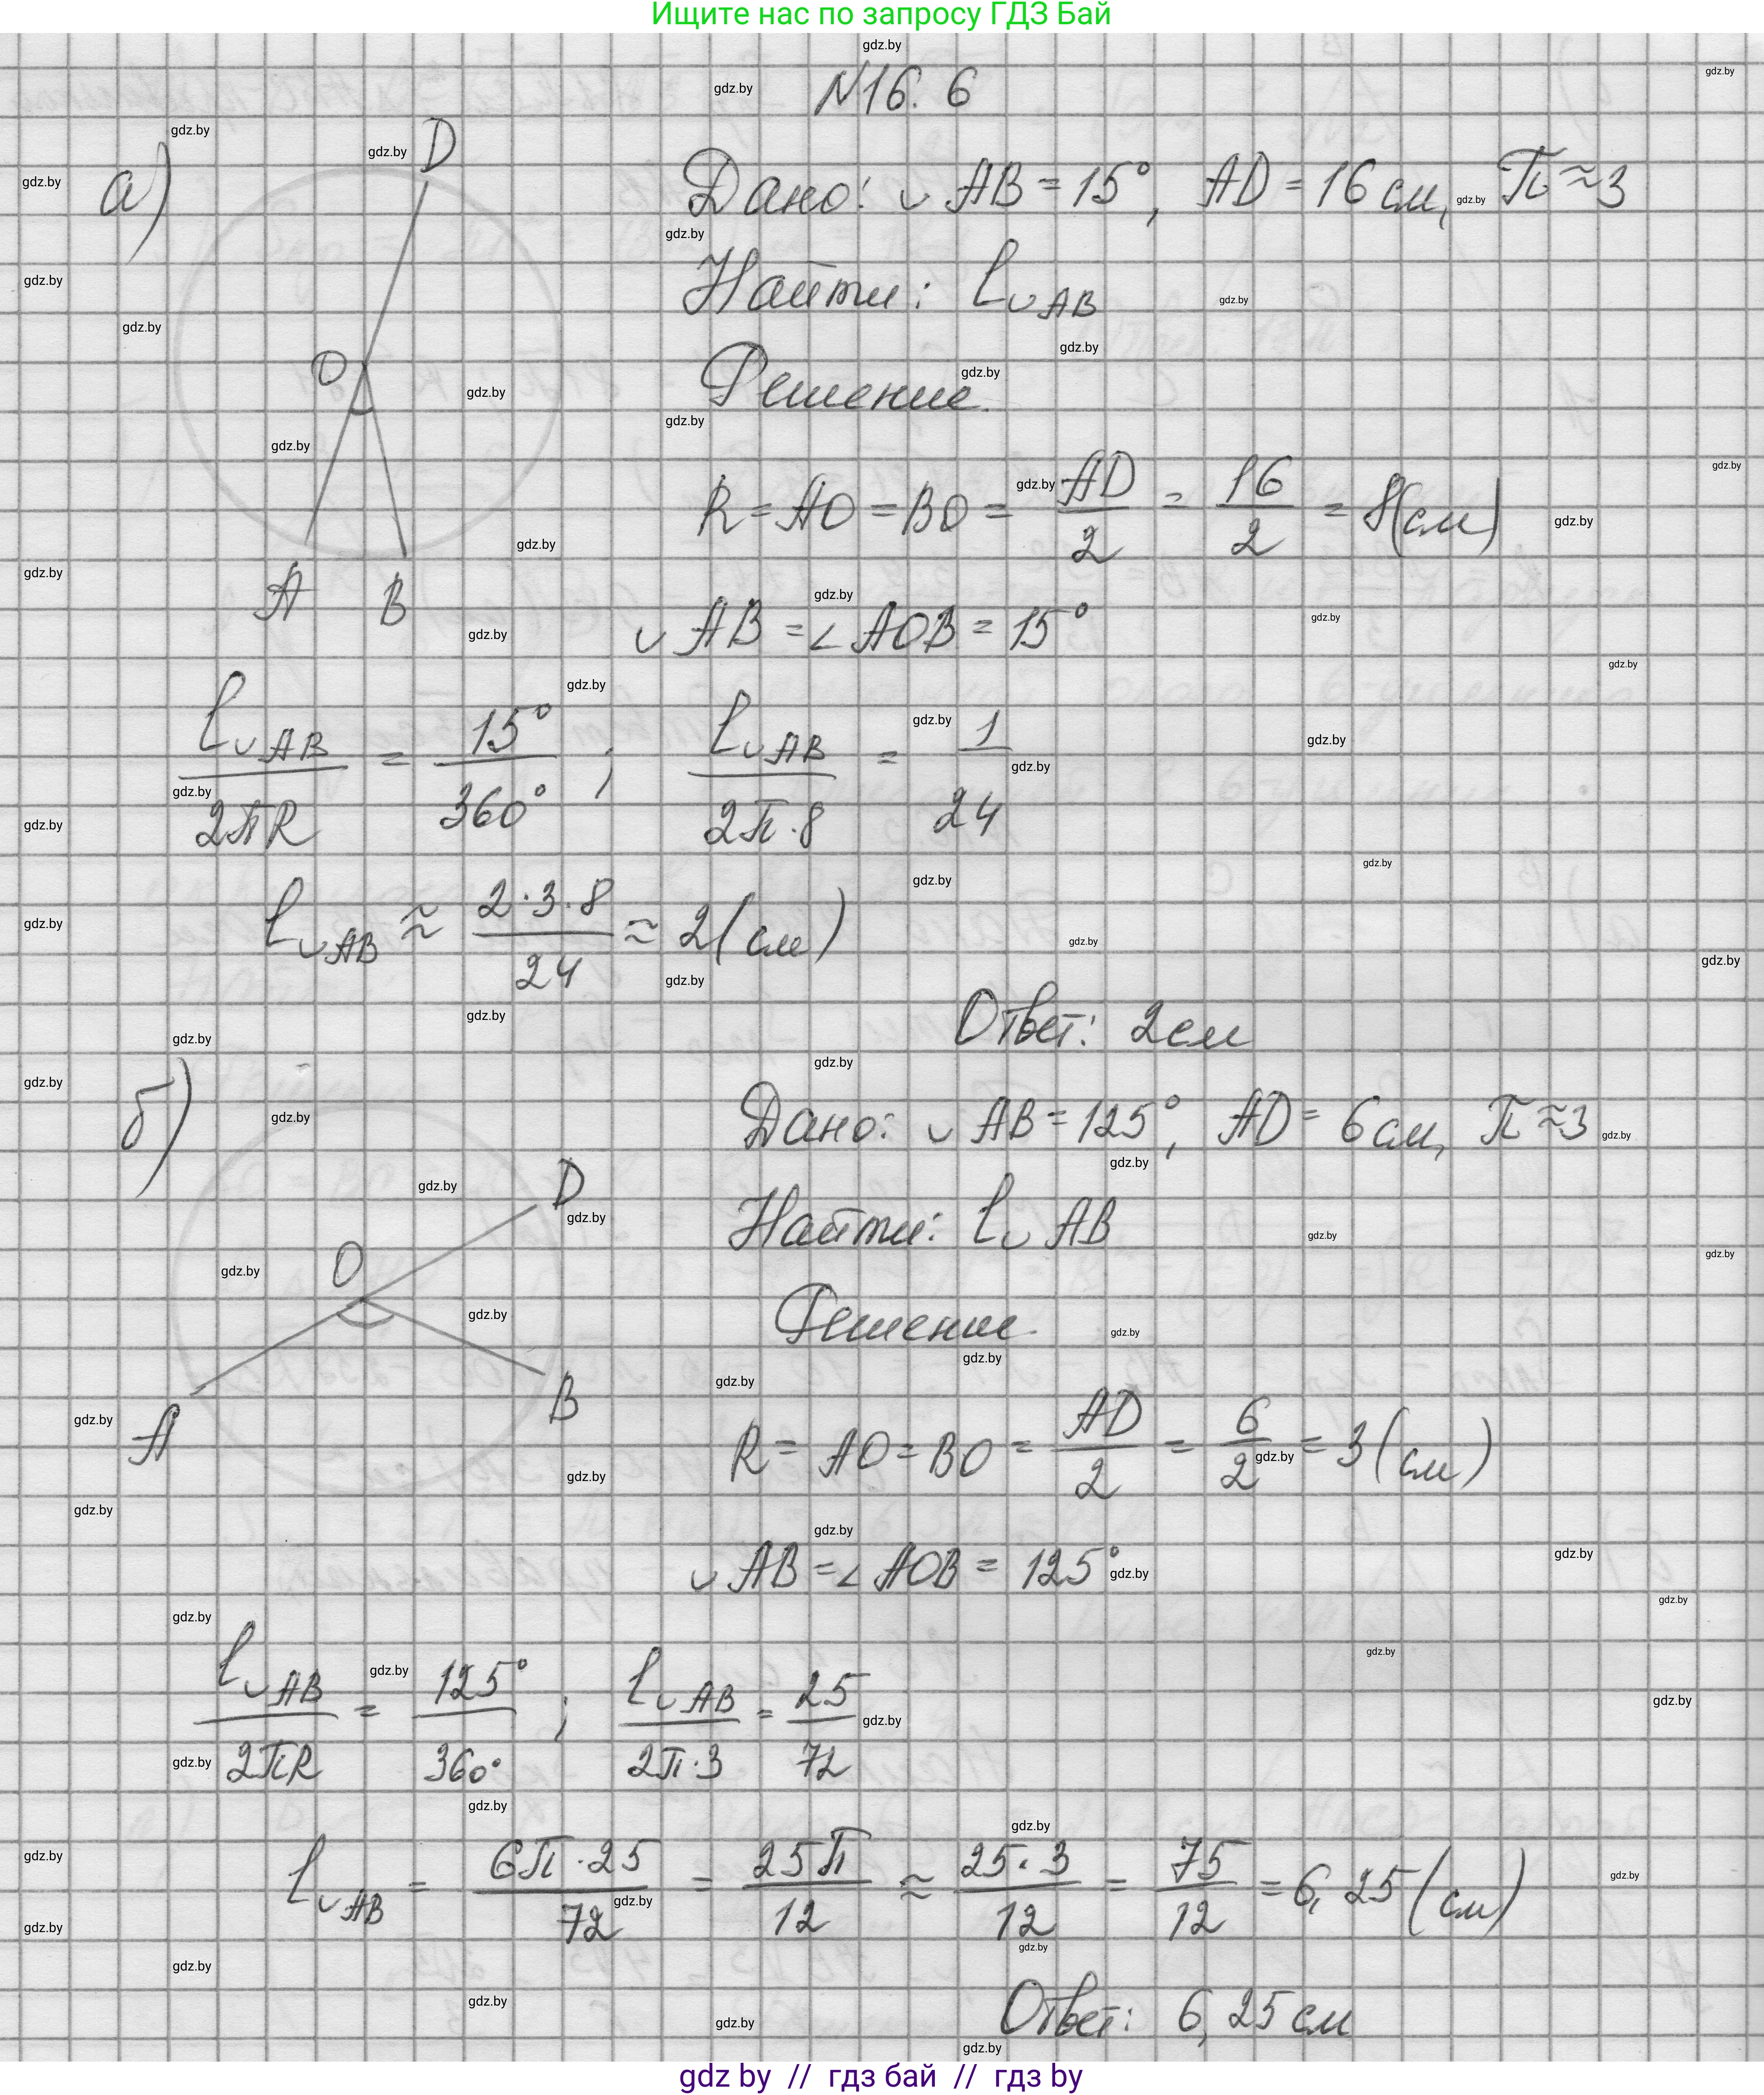 Ищите нас по запросу ГДЗ Бай
N16. 6
а)
Дано: ◡ AB = 15°, AD = 16 см, π ≈ 3
Найти: l◡AB
Решение.
R = AO = BO = AD/2 = 16/2 = 8(см)
◡ AB = ∠ AOB = 15°
l◡AB/2πR = 15°/360° ; l◡AB/2π·8 = 1/24
l◡AB ≈ 2·3·8/24 ≈ 2(см)
Ответ: 2см
D
O
A B
б)
Дано: ◡ AB = 125°, AD = 6 см, π ≈ 3
Найти: l◡ AB
Решение.
R = AO = BO = AD/2 = 6/2 = 3(см)
◡ AB = ∠ AOB = 125°
l◡AB/2πR = 125°/360° ; l◡AB/2π·3 = 25/72
l◡AB = 6π·25/72 = 25π/12 ≈ 25·3/12 = 75/12 = 6,25(см)
Ответ: 6,25 см
D
O
B
A
gdz by // гдз бай // гдз by